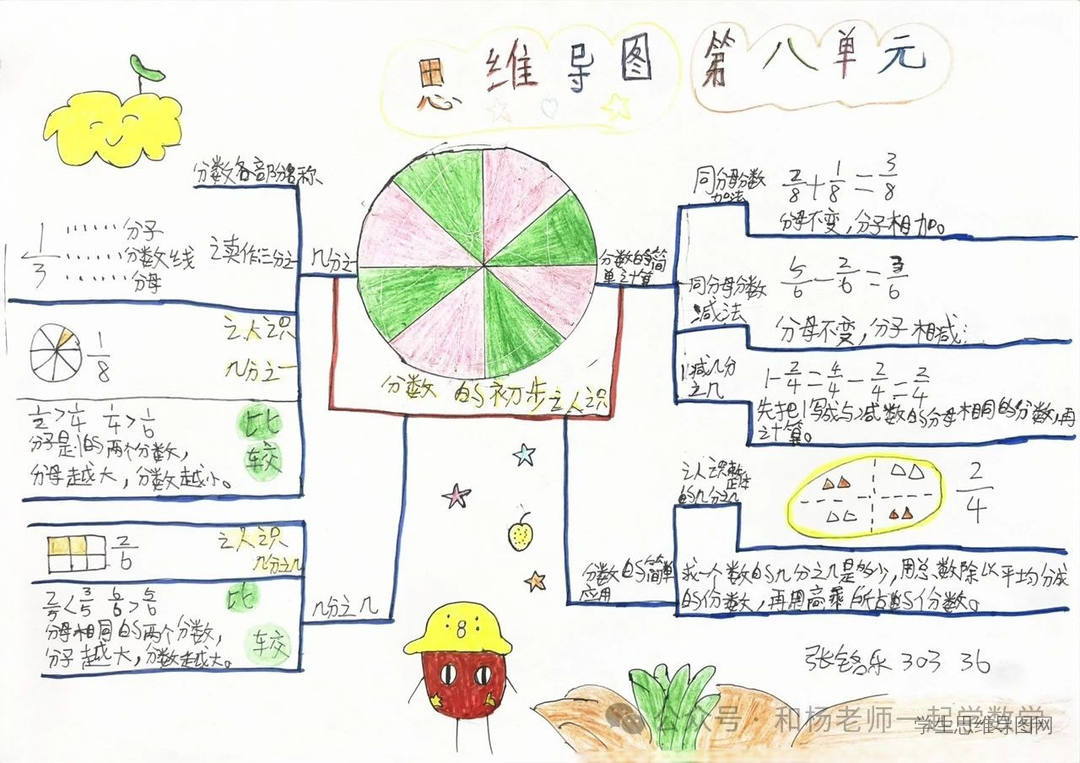 思维导图 第八单元
分数各部分名称
1/3
分子
分数线
分母
读作三分之一
几分之一
1/8
认识
几分之一
1/2>1/4 1/4>1/6
分子是1的两个分数,
分母越大,分数越小。
比
较
2/6
认识
几分之几
2/5<3/5 6/6>5/6
分母相同的两个分数,
分子越大,分数越大。
比
较
几分之几
分数的初步认识
分数的简
单计算
同分母分数
加法
2/8+1/8=3/8
分母不变,分子相加。
同分母分数
减法
5/6-2/6=3/6
分母不变,分子相减。
1减几分
之几
1-2/4=4/4-2/4=2/4
先把1写成与减数的分母相同的分数,再
计算。
认识整体
的几分之几
2/4
分数的简单
应用
求一个数的几分之几是多少,用总数除以平均分成
的份数,再用商乘所占的份数。
8
张铭乐 303 36
公众号·和杨老师一起学数学
学生思维导图网